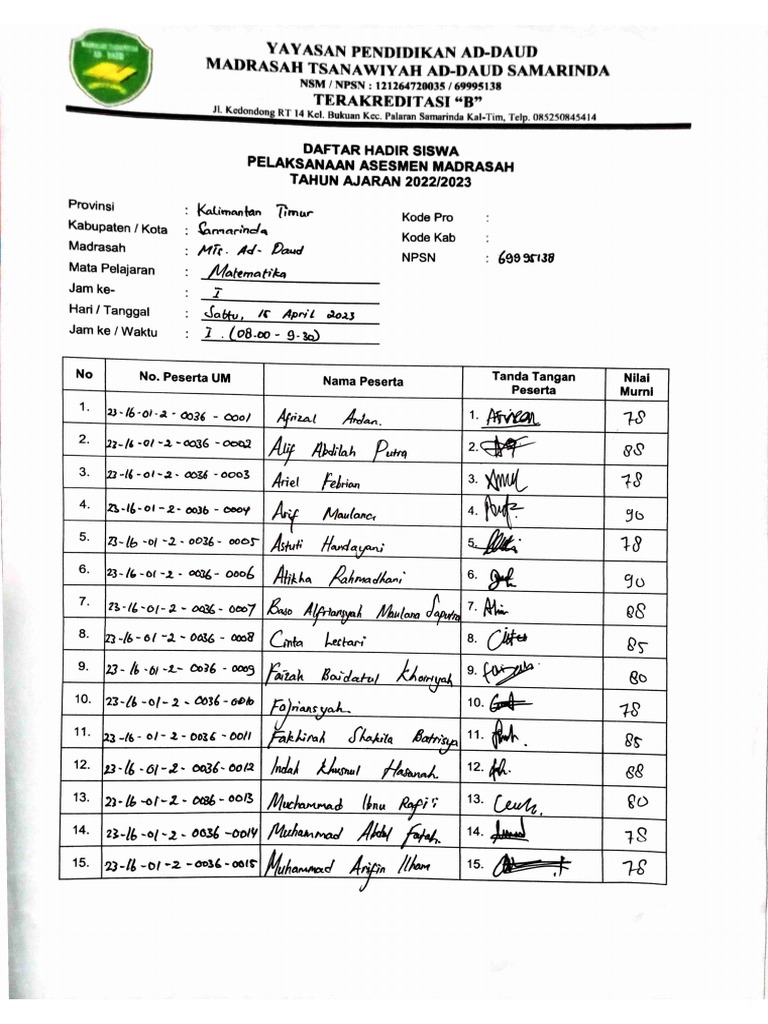 MADRASAH TSANAWIYAH
AD-DAUD
YAYASAN PENDIDIKAN AD-DAUD
MADRASAH TSANAWIYAH AD-DAUD SAMARINDA
NSM / NPSN : 121264720035 / 69995138
TERAKREDITASI “B”
Jl. Kedondong RT 14 Kel. Bukuan Kec. Palaran Samarinda Kal-Tim, Telp. 085250845414
DAFTAR HADIR SISWA
PELAKSANAAN ASESMEN MADRASAH
TAHUN AJARAN 2022/2023
Provinsi : Kalimantan Timur Kode Pro :
Kabupaten / Kota : Samarinda Kode Kab :
Madrasah : MTs. Ad-Daud NPSN : 69995138
Mata Pelajaran : Matematika
Jam ke- : I
Hari / Tanggal : Sabtu, 15 April 2023
Jam ke / Waktu : I. (08.00 - 9.30)
No No. Peserta UM Nama Peserta Tanda Tangan Peserta Nilai Murni
1. 23-16-01-2-0036-0001 Afrizal Ardan. 1. 78
2. 23-16-01-2-0036-0002 Alif Abdilah Putra 2. 88
3. 23-16-01-2-0036-0003 Ariel Febrian 3. 78
4. 23-16-01-2-0036-0004 Arif Maulana 4. 90
5. 23-16-01-2-0036-0005 Astuti Handayani 5. 78
6. 23-16-01-2-0036-0006 Atikha Rahmadhani 6. 90
7. 23-16-01-2-0036-0007 Baso Alfriansyah Maulana Saputra 7. 88
8. 23-16-01-2-0036-0008 Cinta Lestari 8. 85
9. 23-16-01-2-0036-0009 Faizah Baidatul Khoiriyah 9. 80
10. 23-16-01-2-0036-0010 Fajriansyah. 10. 78
11. 23-16-01-2-0036-0011 Fakhirah Shakila Batrisya 11. 85
12. 23-16-01-2-0036-0012 Indah Khusnul Hasanah. 12. 88
13. 23-16-01-2-0036-0013 Muchammad Ibnu Rafi'i 13. 80
14. 23-16-01-2-0036-0014 Muhammad Abdul Fatah. 14. 78
15. 23-16-01-2-0036-0015 Muhammad Arifin Ilham 15. 78